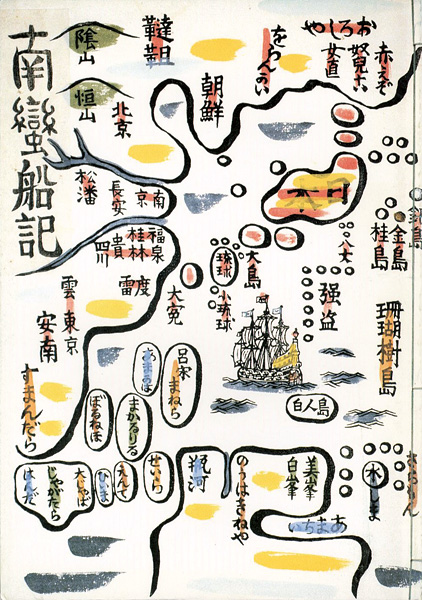 南蠻船記
陰山
恒山
韃靼
北京
朝鮮
をらんかい
おろしや
奴児干
女直
赤えぞ
日本
松潘
長安
南京
福泉
桂林
貴
四川
雷度
雲
東京
安南
大冤
琉球
小琉球
大島
八丈
強盗
金島
桂島
珊瑚樹島
白人島
すまんだら
呂宋
まねら
まかるりる
ぼるねほ
せいら
ひいま
大じゃば
じゃがたら
はんだ
瓶河
のうばぎねや
美峯
白峯
あまちい
水しま